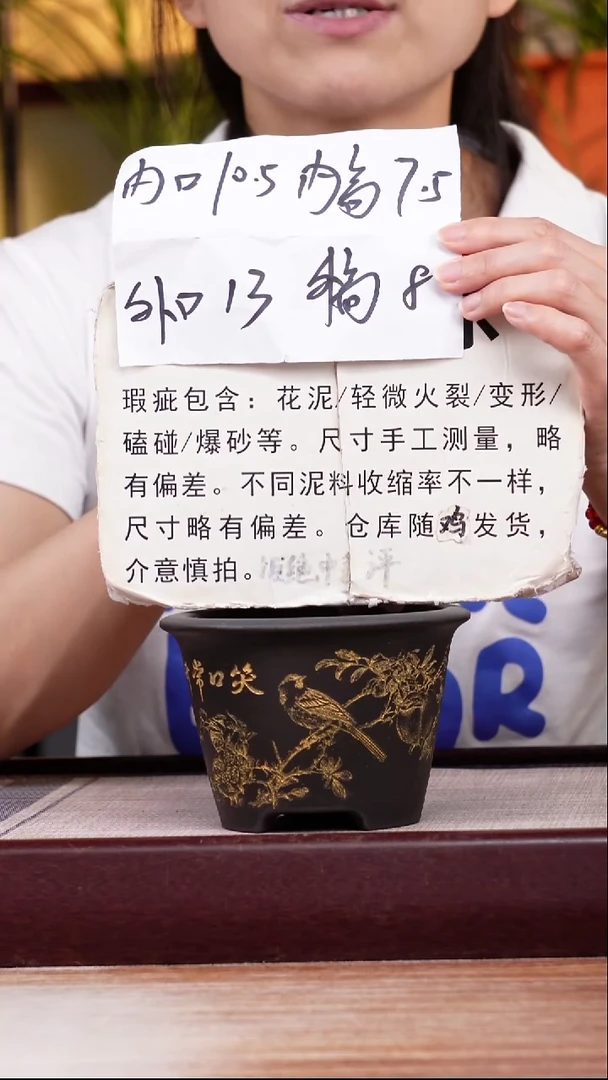 内口10.5 内高7.5
外口13 外高8
瑕疵包含：花泥/轻微火裂/变形/
磕碰/爆砂等。尺寸手工测量，略
有偏差。不同泥料收缩率不一样，
尺寸略有偏差。仓库随鸡发货，
介意慎拍。
常口笑